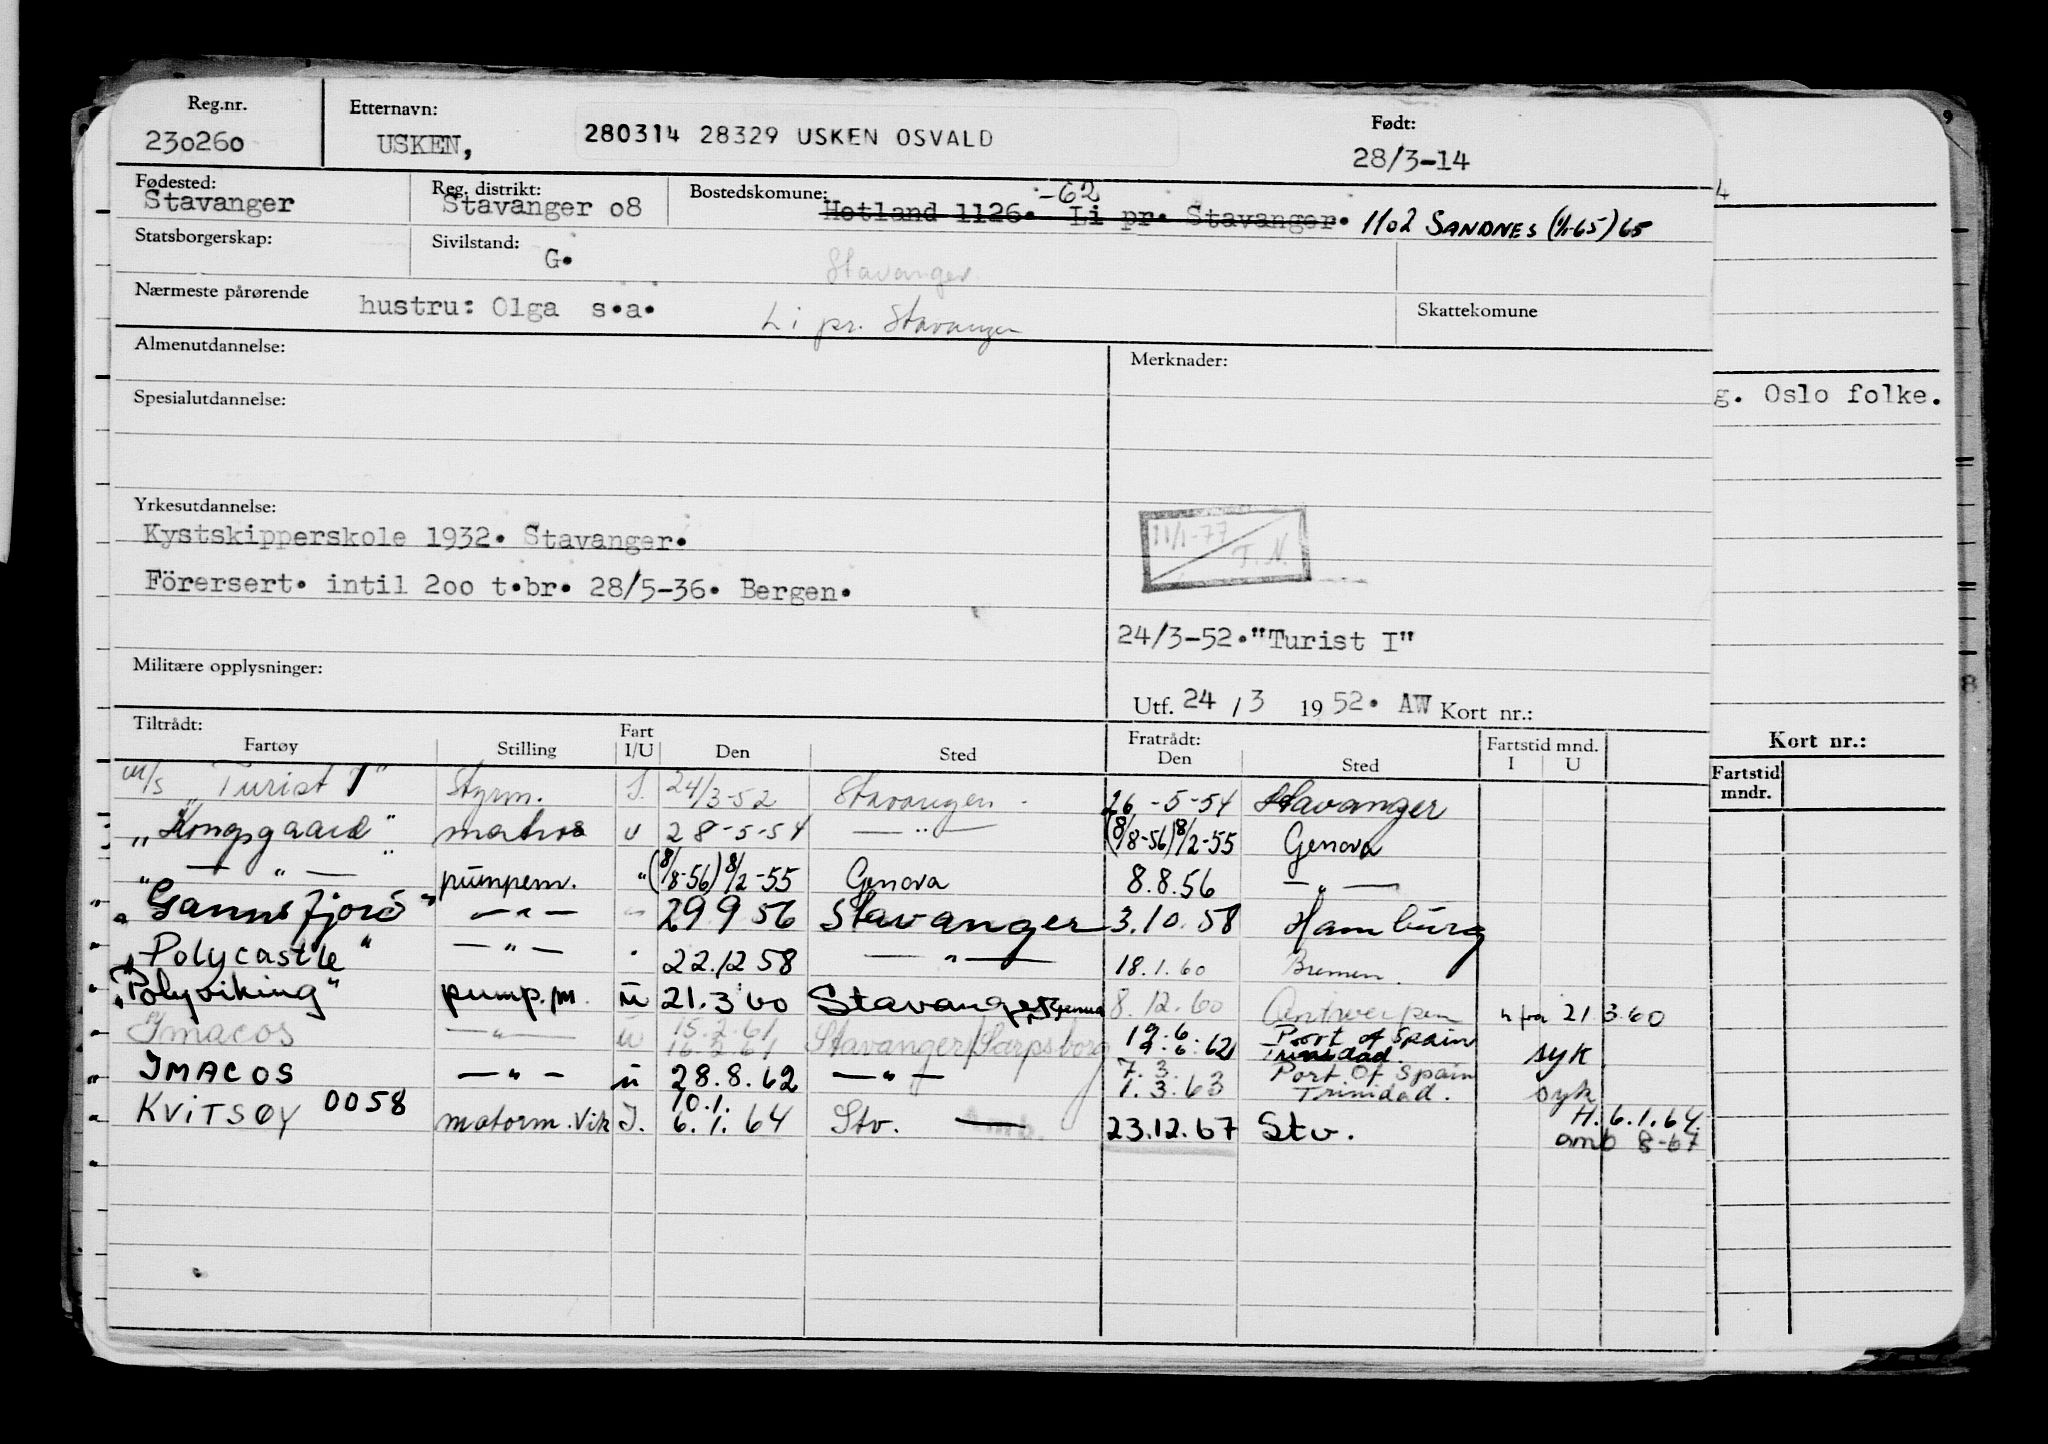 Reg.nr. Etternavn: Født:
230260 USKEN, 280314 28329 USKEN OSVALD 28/3-14
Fødested: Reg. distrikt: Bostedskomune: -62
Stavanger Stavanger o8 Hetland 1126. Li pr. Stavanger. 1102 SANDNES (1/1-65) 65
Statsborgerskap: Sivilstand:
G. Stavanger
Nærmeste pårørende hustru: Olga s.a. Li pr. Stavanger Skattekomune
Almenutdannelse: Merknader:
g. Oslo folke.
Spesialutdannelse:
Yrkesutdannelse:
Kystskipperskole 1932. Stavanger. 11/1-77
Förersert. intil 2oo t.br. 28/5-36. Bergen. F.N.
24/3-52."Turist I"
Militære opplysninger:
Utf. 24 / 3 1952. AW Kort nr.:
Tiltrådt: Fratrådt: Kort nr.:
Fartøy Stilling Fart I/U Den Sted Den Sted Fartstid mnd. I U Fartstid mndr.
m/s "Turist I" Styrm. I. 24/3-52 Stavanger. 26-5-54 Stavanger
"Kongsgaard" matros u 28-5-54 — " — (8/8-56) 8/2-55 Genova
" — " — " pumpem. " (8/8-56) 8/2-55 Genova 8.8.56 — " —
"Gannsfjord" — " — " 29 9 56 Stavanger 3.10.58 Hamburg
"Polycastle" — " — " 22.12 58 — " — 18.1.60 Bremen
"Polyviking" pump.m. u 21.3 60 Stavanger 8.12.60 Antwerpen u fra 21 3.60
Imacos — " — u 15.2.61 Stavanger/Sarpsborg 19.6. Port of Spain
16.2 61 9.6.62 Trinidad. syk
IMACOS — " — u 28.8.62 — " — 7.3. Port Of Spain
1.3.63 Trinidad. syk
KVITSØY 0058 motorm. Vik I. 10.1. H. 6.1.64.
6.1.64 Stv. — 23.12.67 Stv. amb 8-67